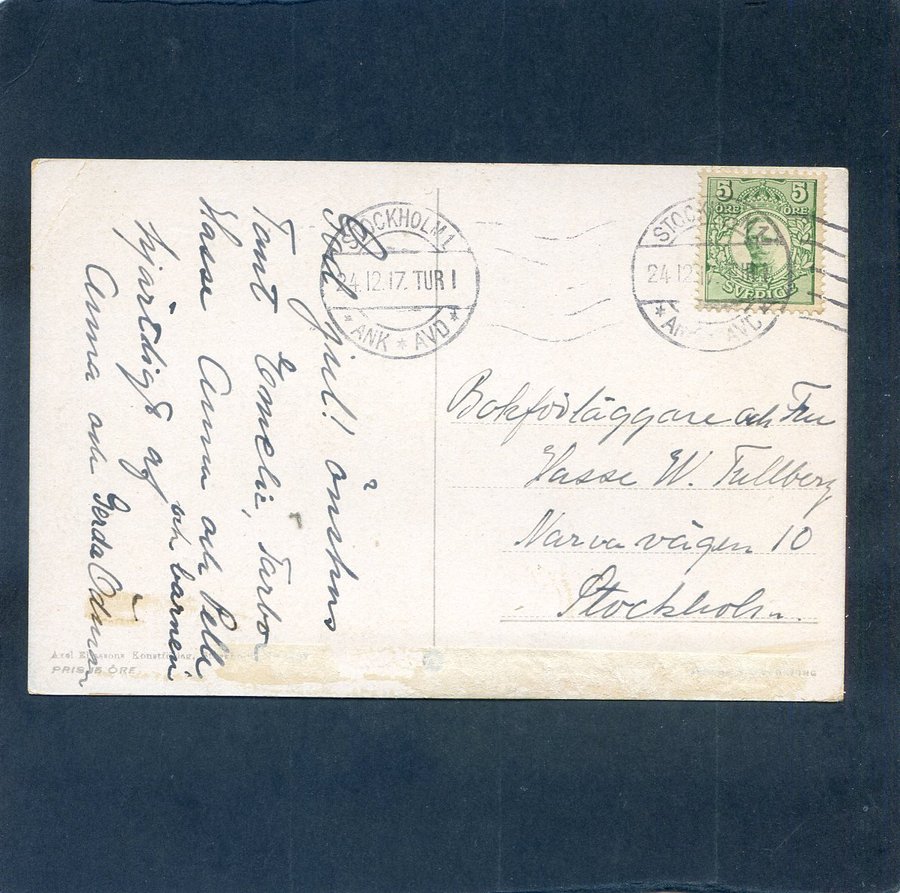 God Jul! önskas
Tant Emelie, Farbor
Hasse Anna och Pelle
och barnen
hjärtligt af
Anna och Gerda Ödman
STOCKHOLM 1
24.12.17. TUR I
* ANK * AVD *
STOCK
24.12
AVD
5 5
ÖRE ÖRE
SVERIGE
Bokförläggare och Fru
Hasse W. Tullberg
Narvavägen 10
Stockholm.
Axel Eliassons Konstförlag,
PRIS 15 ÖRE.